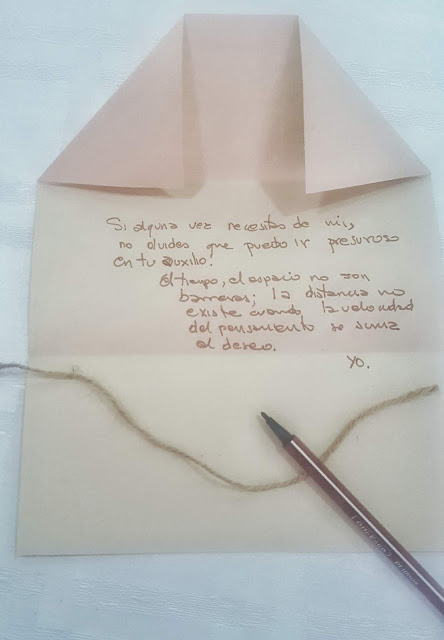 Si alguna vez necesitas de mi,
no olvides que puedo ir presuroso
en tu auxilio.
El tiempo, el espacio no son
barreras; la distancia no
existe cuando la velocidad
del pensamiento se suma
al deseo.
Yo.